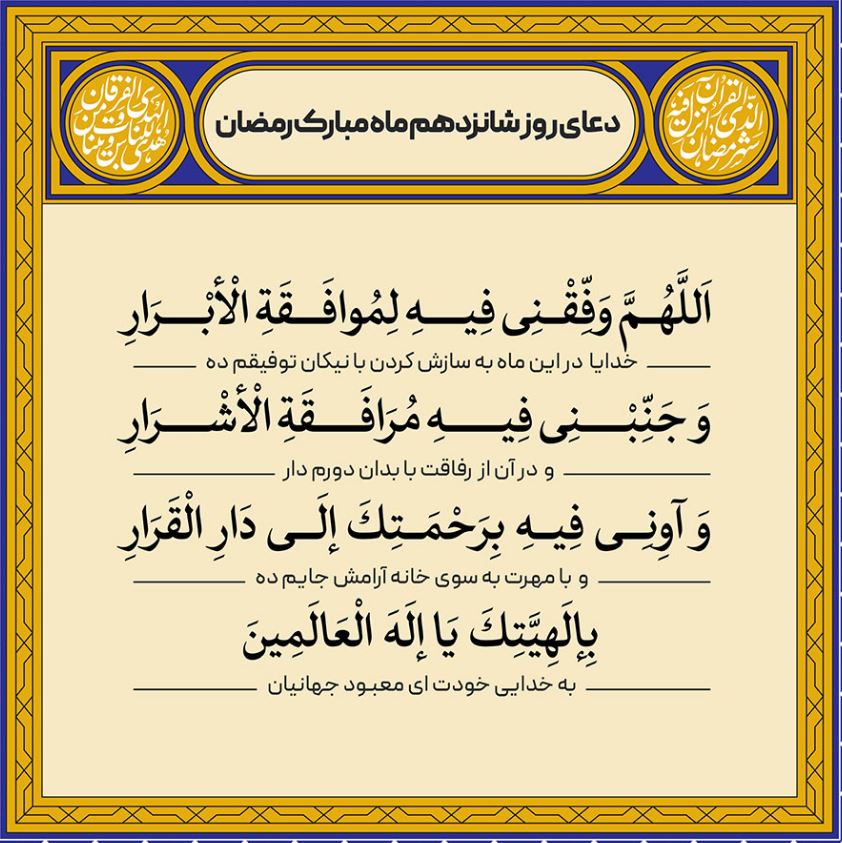 دعای روز شانزدهم ماه مبارک رمضان
شهر رمضان الذی انزل فیه القرآن
هدی للناس و بینات من الهدی و الفرقان
اَللَّهُمَّ وَفِّقْنِی فِیهِ لِمُوافَقَةِ الْأَبْرَارِ
خدایا در این ماه به سازش کردن با نیکان توفیقم ده
وَ جَنِّبْنِی فِیهِ مُرَافَقَةِ الْأَشْرَارِ
و در آن از رفاقت با بدان دورم دار
وَ آوِنِی فِیهِ بِرَحْمَتِكَ إلَی دَارِ الْقَرَارِ
و با مهرت به سوی خانه آرامش جایم ده
بِإلَهِیَّتِكَ یَا إلَهَ الْعَالَمِینَ
به خدایی خودت ای معبود جهانیان